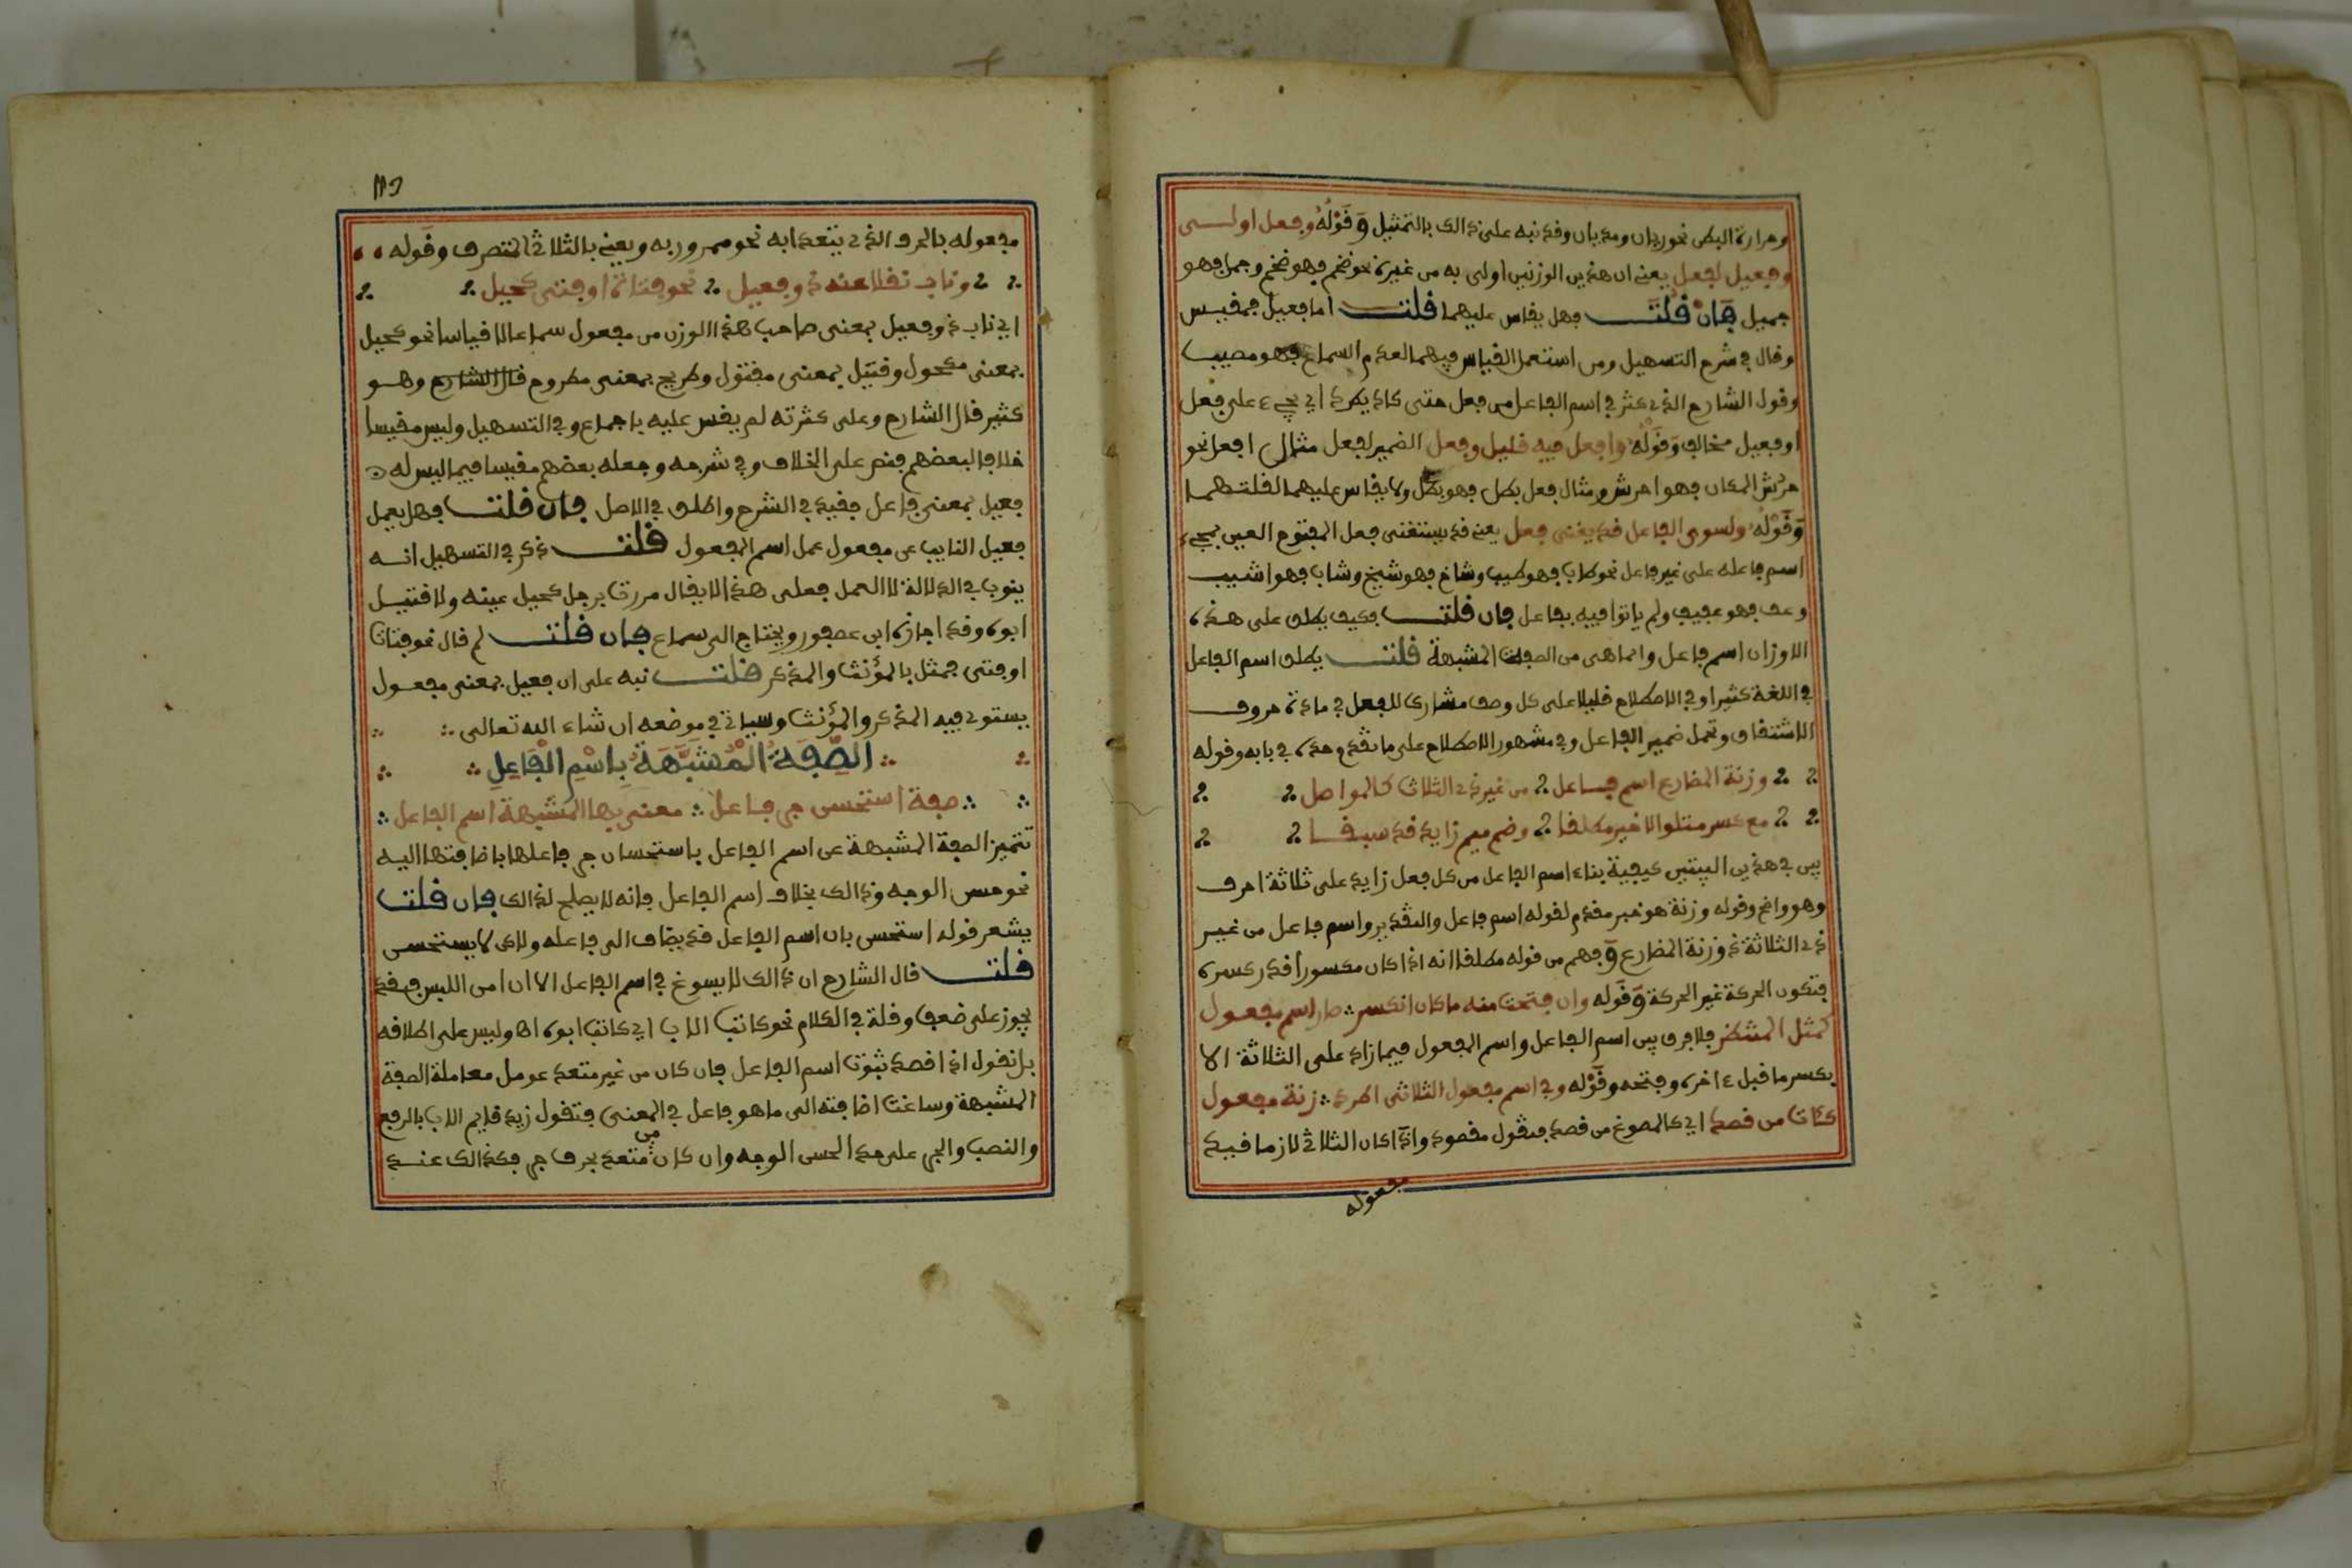 وحرارة البطن نحو ريان وصديان وقد نبه على ذالك بالتمثيل وَقَوْلُهُ وفعل اولى
وفعيل لفعل يعني ان هذين الوزنين اولى به من غيره نحو ضخم فهو ضخم وجمل فهو
جميل فَإنْ قُلْتَ فهل يقاس عليهما قلت اما فعيل فمقيس
وقال في شرح التسهيل ومن استعمل القياس فيهما لعدم السماع فهو مصيب
وقول الشارح الذي كثر في اسم الفاعل من فعل حتى كاد يطرد ان يجيء على فعل
او فعيل مخالف وَقَوْلُهُ وافعل فيه قليل وفعل الضمير لفعل مثال افعل نحو
حرش المكان فهو احرش ومثال فعل بطل فهو بطل ولا يقاس عليهما لقلتهما
وَقَوْلُهُ ولسوى الفاعل قد يغنى فعل يعني قد يستغنى فعل المفتوح العين بمجيء
اسم فاعله على غير فاعل نحو طاب فهو طيب وشاخ فهو شيخ وشاب فهو اشيب
وعف فهو عفيف ولم ياتوا فيه بفاعل فان قلت فكيف يطلق على هذه
الاوزان اسم فاعل وانما هى من الصفات المشبهة قلت يطلق اسم الفاعل
في اللغة كثيرا وفي الاصطلاح قليلا على كل وصف مشارك للفعل في مادة حروف
الاشتقاق وتحمل ضمير الفاعل وفي مشهور الاصطلاح على ما تقدم حده في بابه وقوله
وزنة المضارع اسم فاعل من غير ذي الثلاث كالمواصل
مع كسر متلو الاخير مطلقا وضم ميم زايد قد سبقا
بين في هذين البيتين كيفية بناء اسم الفاعل من كل فعل زايد على ثلاثة احرف
وهو واضح وقوله وزنة هو خبر مقدم لقوله اسم فاعل والتقدير واسم فاعل من غير
ذي الثلاثة ذو زنة المضارع وَفهم من قوله مطلقا انه اذا كان مكسورا قدر كسره
فتكون الحركة غير الحركة وَقَوله وان فتحت منه ما كان انكسر صار اسم مفعول
كمثل المنتظر فلا فرق بين اسم الفاعل واسم المفعول فيما زاد على الثلاثة الا
بكسر ما قبل ءاخره وفتحه وقَوْله وفي اسم مفعول الثلاثى اطرد زنة مفعول
كئات من قصد اي كالمصوغ من قصد فتقول مقصود واذا كان الثلاثي لازما قيد
مفعوله
مفعوله بالحرف الذي يتعدا به نحو ممرور به ويعني بالثلاثي المتصرف وقَوله
وناب نقلا عنه ذو فعيل نحو فتاة او فتى كحيل
اي ناب ذو فعيل بمعنى صاحب هذا الوزن من مفعول سماعا لا قياسا نحو كحيل
بمعنى مكحول وقتيل بمعنى مقتول وطريح بمعنى مطروح قال الشارح وهو
كثير قال الشارح وعلى كثرته لم يقس عليه باجماع وفي التسهيل وليس مقيسا
خلافا لبعضهم فنص على الخلاف وفي شرحه وجعله بعضهم مقيسا فيما ليس له
فعيل بمعنى فاعل فقيد في الشرح واطلق في الاصل فان قلت فهل يعمل
فعيل النايب عن مفعول عمل اسم المفعول قلت ذكر في التسهيل انه
ينوب في الدلالة لا العمل فعلى هذا لا يقال مررت برجل كحيل عينه ولا قتيل
ابوه وقد اجازه ابن عصفور ويحتاج الى سماع فان قلت لم قال نحو فتات
او فتى فمثل بالمؤنث والمذكر قلت نبه على ان فعيل بمعنى مفعول
يستوي فيه المذكر والمؤنث وسياتي في موضعه ان شاء الله تعالى
الصِّفَةُ الْمُشَبَّهَةُ بِاسْمِ الْفَاعِلِ
صفة استحسن جر فاعل معنى بها المشبهة اسم الفاعل
تتميز الصفة المشبهة عن اسم الفاعل باستحسان جر فاعلها باضافتها اليه
نحو حسن الوجه وذالك بخلاف اسم الفاعل فانه لا يصلح لذالك فان قلت
يشعر قوله استحسن بان اسم الفاعل قد يضاف الى فاعله ولاكن لا يستحسن
قلت قال الشارح ان ذالك لا يسوغ في اسم الفاعل الا ان امن اللبس فقد
يجوز على ضعف وقلة في الكلام نحو كاتب الاب اي كاتب ابوه اه وليس على اطلاقه
بل نقول اذا قصد ثبوت اسم الفاعل فان كان من غير متعد عومل معاملة الصفة
المشبهة وساغت اضافته الى ما هو فاعل في المعنى فتقول زيد قايم الاب بالرفع
والنصب والجر على حد الحسن الوجه وان كان من متعد بحرف جر فكذالك عند